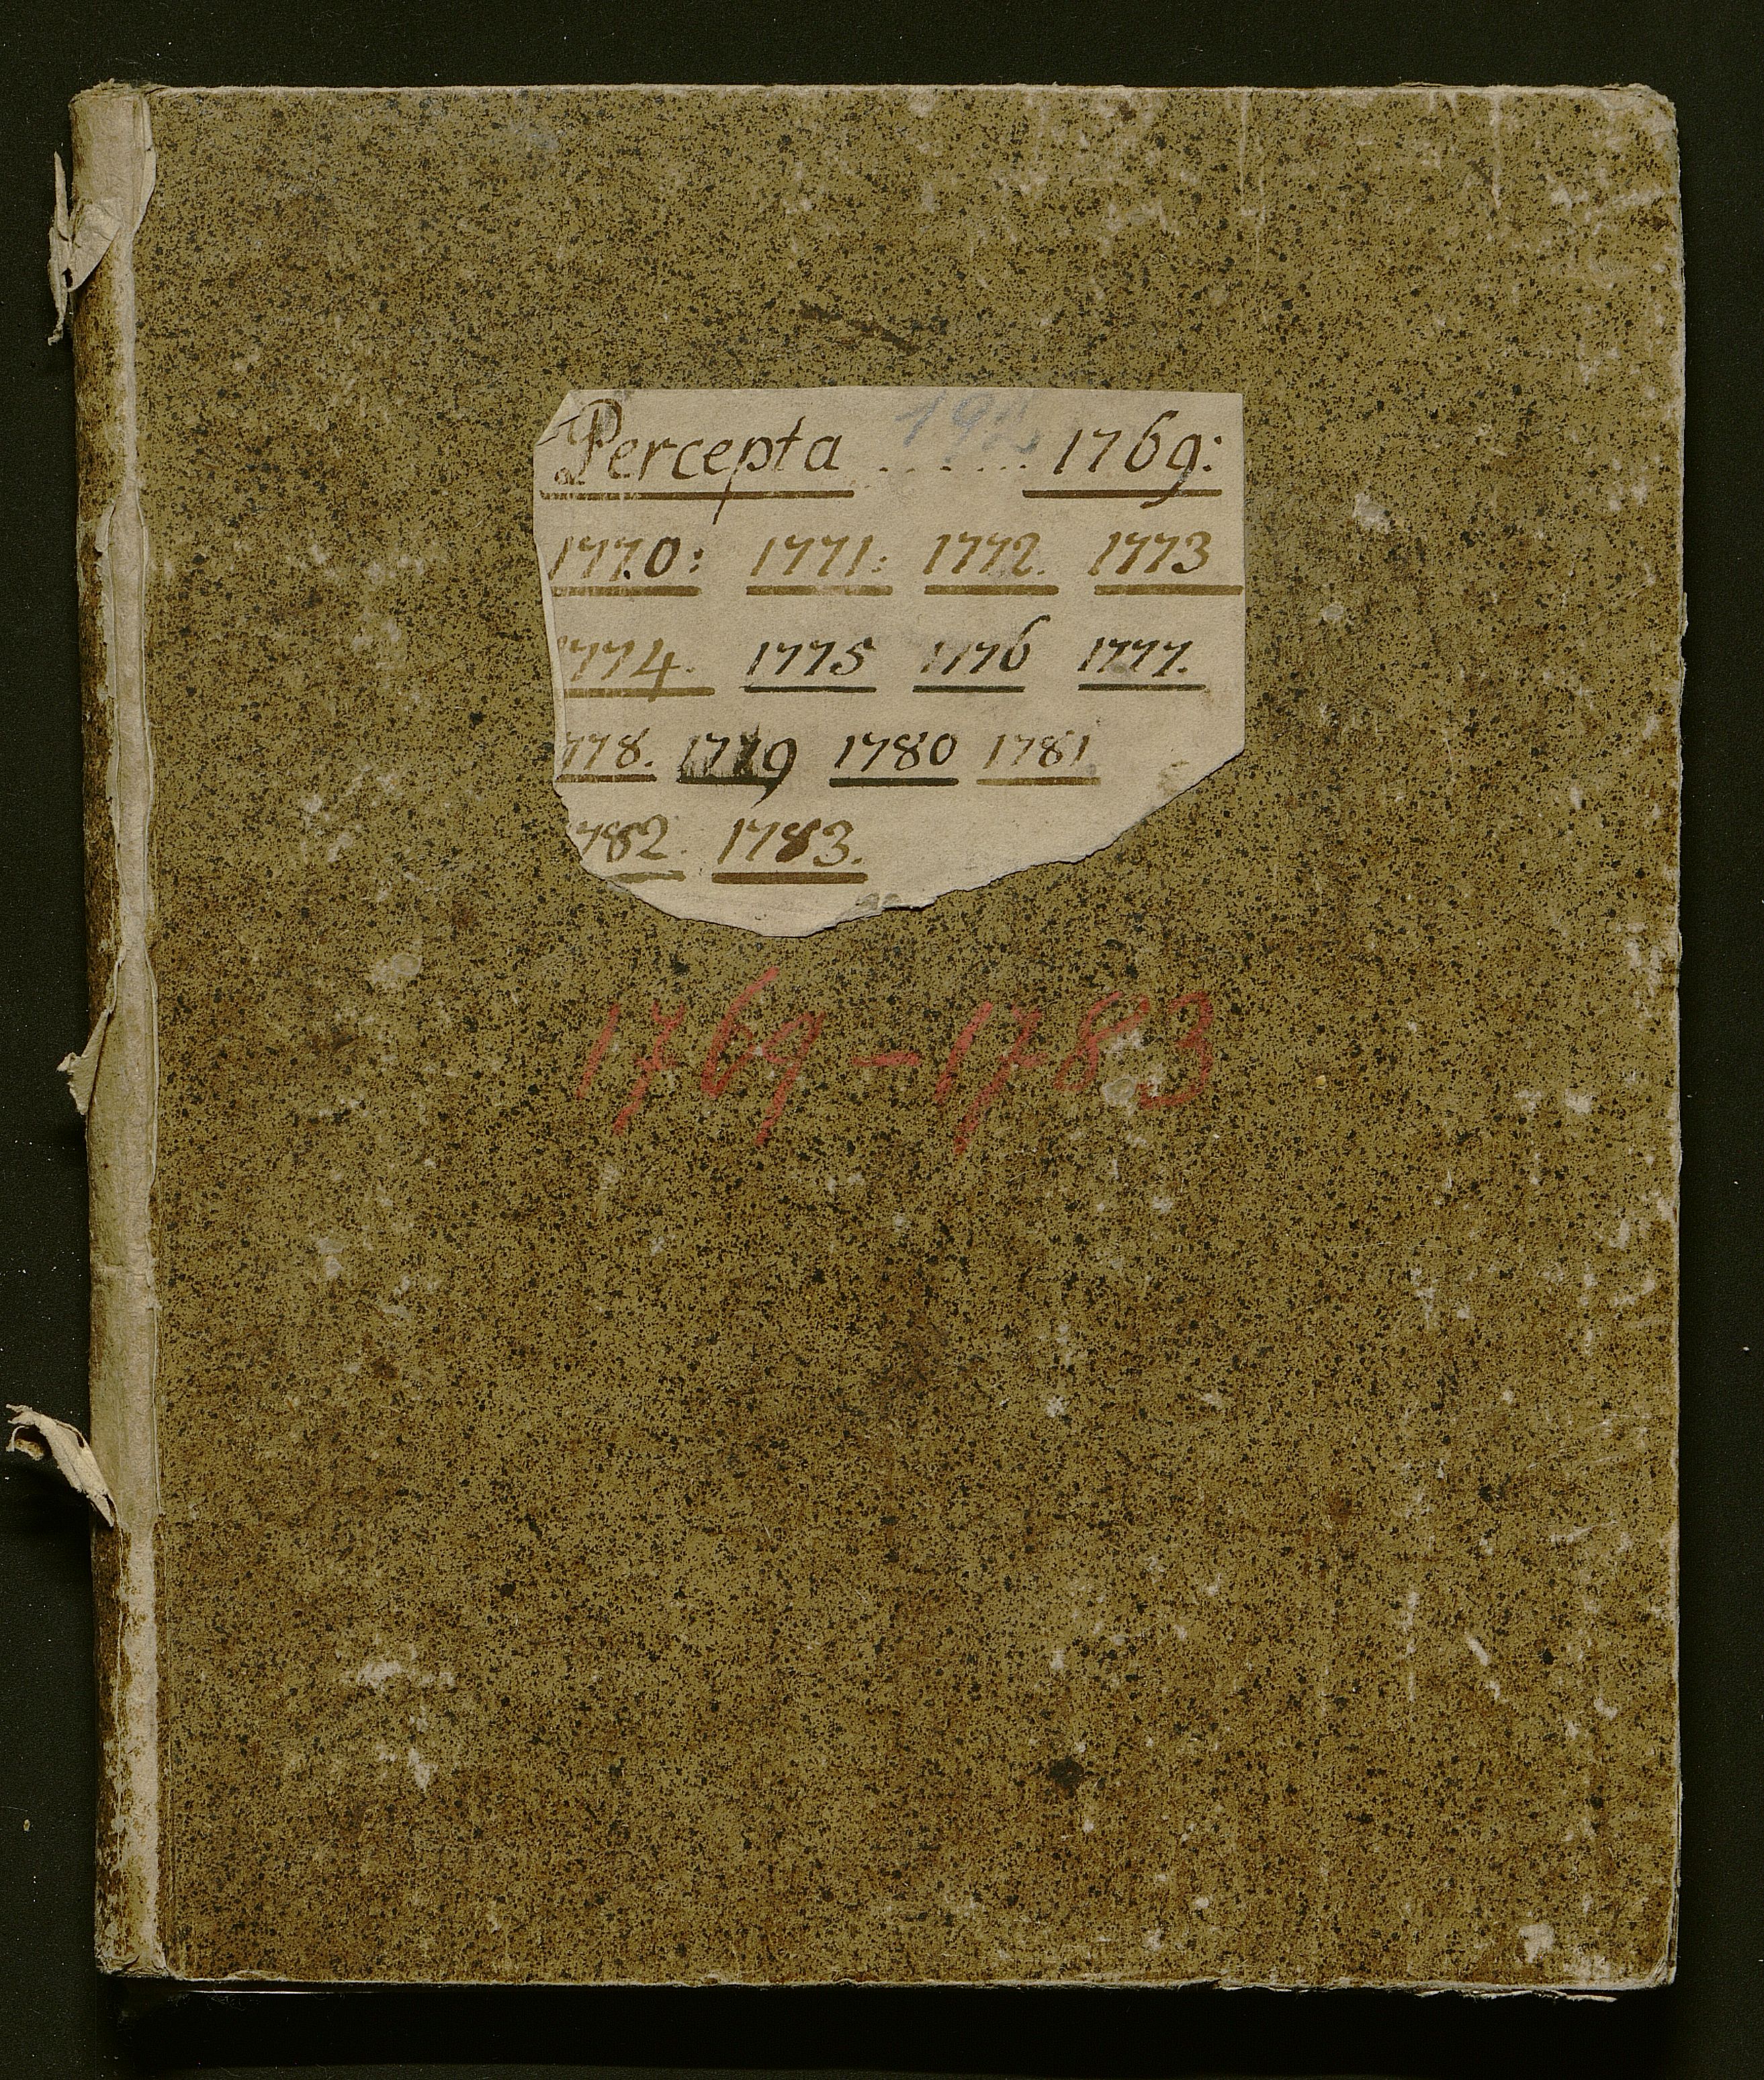 Percepta ....... 1769:
1770: 1771: 1772. 1773
1774. 1775 1776 1777.
778. 1779 1780 1781
782. 1783.
1769-1783